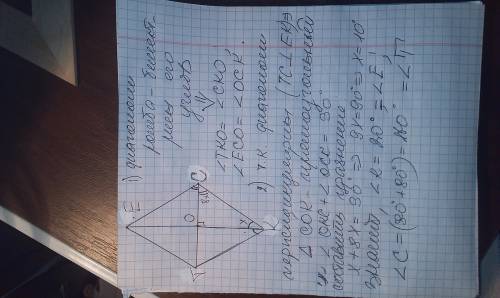 E
T
O
C
8x
x
K
1) диагонали
ромба - биссект-
рисы его
углов
⇓
∠TKO = ∠CKO,
∠ECO = ∠OCK.
2) т.к. диагонали
перпендикулярны (TC⊥EK) ⇒
Δ COK - прямоугольный
∠ OKC + ∠ OCK = 90°
составить уравнение
x + 8x = 90° ⇒ 9x = 90° ⇒ x = 10°
Значит, ∠K = 20° = ∠E,
∠C = (80° + 80°) = 160° = ∠T